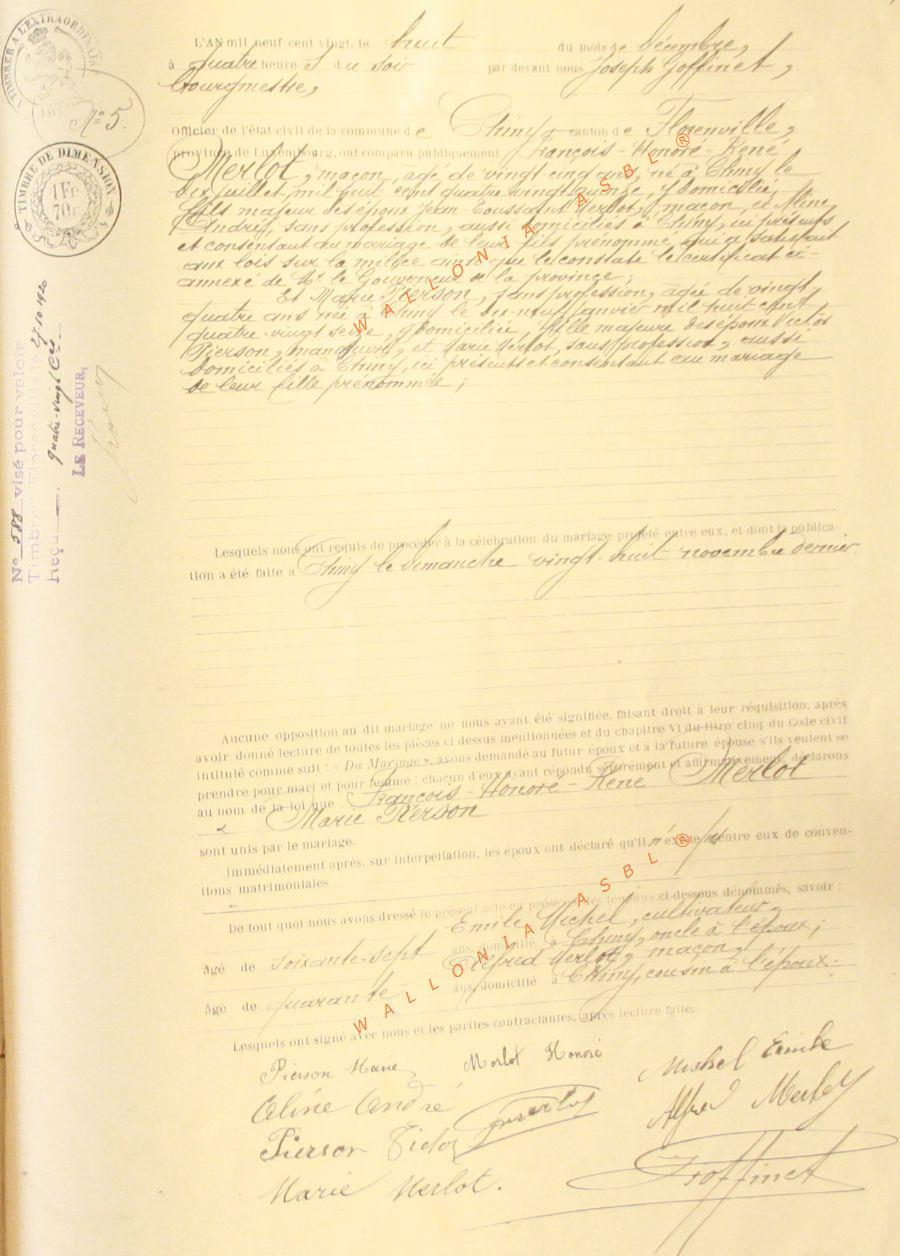 TIMBRER A L'EXTRAORDINAIRE
N° 5.
TIMBRE DE DIMENSION
1 Fr
70 c
N° 588 visé pour valoir
Timbre à Florenville le 4/10 1920
Reçu quatre-vingt Ces
LE RECEVEUR,
L'AN mil neuf cent vingt, le huit du mois de Décembre,
à quatre heures du soir par devant nous Joseph Goffinet,
bourgmestre,
Officier de l'état civil de la commune de Chiny, canton de Florenville,
province de Luxembourg, ont comparu publiquement François-Honoré-René
Merlot, maçon, agé de vingt cinq ans, né à Chiny le
dix juillet, mil huit cent quatre vingt quinze, y domicilié,
fils majeur des époux Jean Toussaint Merlot, maçon, et
André, sans profession, aussi domiciliés à Chiny, ici présents
et consentant au mariage de leur fils prénommé, qui a satisfait
aux lois sur la milice ainsi que le constate le certificat ci-
annexé de Mr le Gouverneur de la province;
Et Marie Pierson, sans profession, agée de vingt
quatre ans née à Chiny le dix-neuf janvier mil huit cent
quatre-vingt seize, y domiciliée, fille majeure des époux Victor
Pierson, manœuvre, et Marie Merlot, sans profession, aussi
domiciliés à Chiny, ici présents et consentant au mariage
de leur fille prénommée;
Lesquels nous ont requis de procéder à la célébration du mariage projeté entre eux, et dont la publica-
tion a été faite à Chiny le dimanche vingt-huit novembre dernier.
Aucune opposition au dit mariage ne nous ayant été signifiée, faisant droit à leur réquisition, après
avoir donné lecture de toutes les pièces ci dessus mentionnées et du chapitre VI du titre cinq du Code civil
intitulé comme suit : « Du Mariage », avons demandé au futur époux et à la future épouse s'ils veulent se
prendre pour mari et pour femme ; chacun d'eux ayant répondu séparément et affirmativement, déclarons
au nom de la loi que François-Honoré-René Merlot
et Marie Pierson
sont unis par le mariage.
Immédiatement après, sur interpellation, les époux ont déclaré qu'il n'existe pas entre eux de conven-
tions matrimoniales
De tout quoi nous avons dressé le présent acte en présence des témoins ci-dessous dénommés, savoir :
Emile Michel, cultivateur,
Agé de soixante-sept ans, domicilié à Chiny, oncle à l'époux;
Alfred Merlot, maçon,
Agé de quarante ans, domicilié à Chiny, cousin à l'époux.
Lesquels ont signé avec nous et les parties contractantes, après lecture faite.
Pierson Marie Merlot Honoré Michel Emile
Céline André Alfred Merlot
Pierson Victor
Marie Merlot. J Goffinet
WALLONIA ASBL ®
WALLONIA ASBL ®